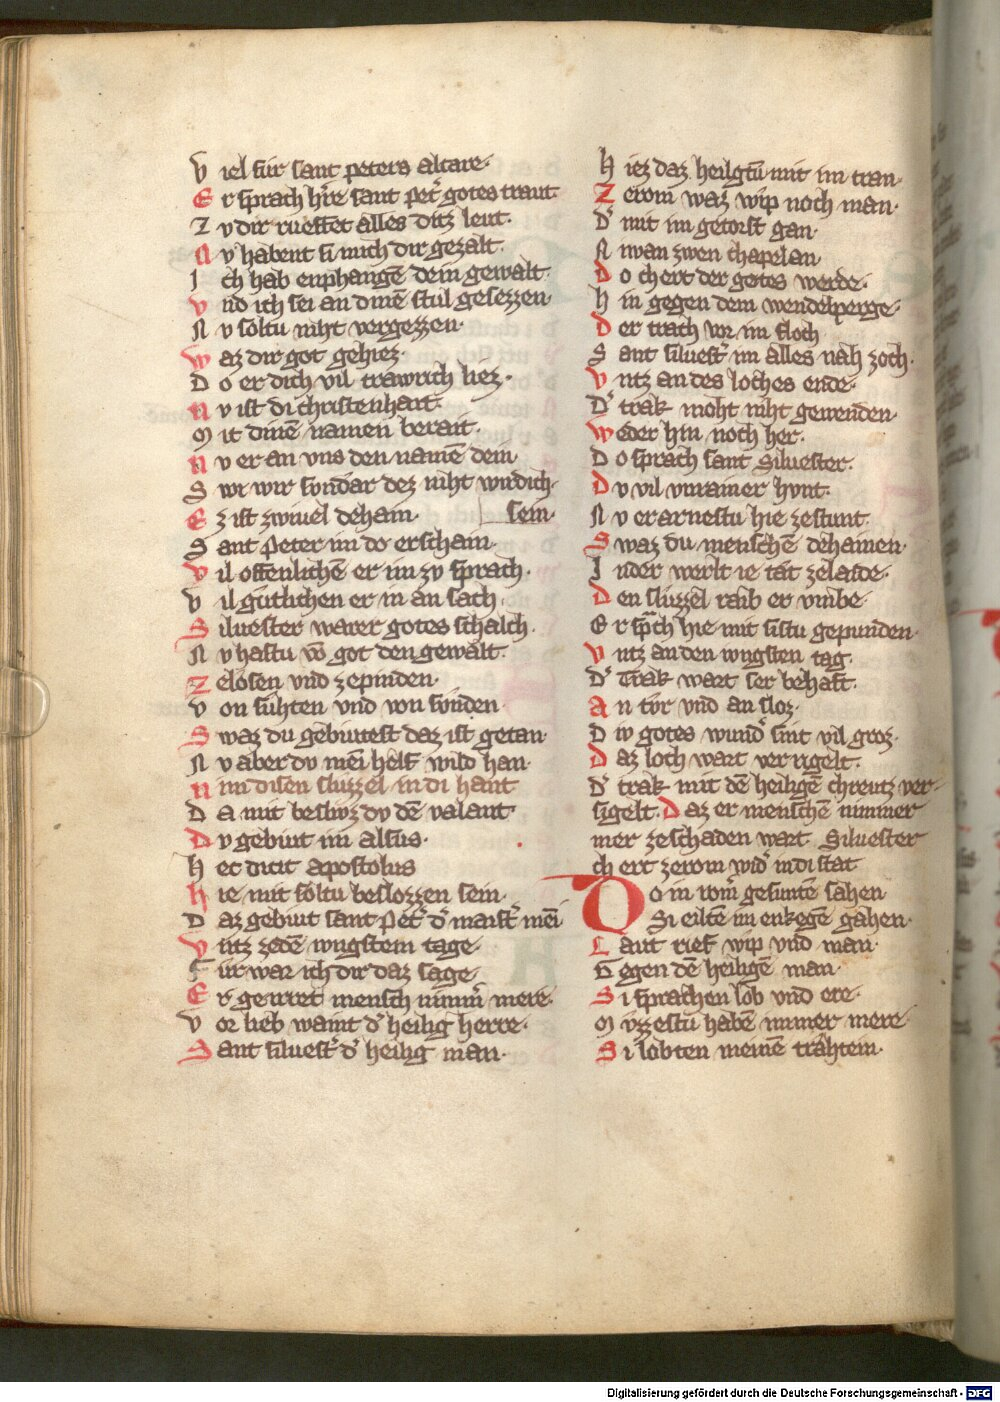 V iel fur sant peters altare·
E r sprach hˀre sant petˀ gotes traut·
Z v dir rueffet alles ditz leut·
N v habent si mich dir gezalt·
I ch hab enphangē dein gewalt·
V nd ich sei an dinē stul gesezzen·
N v soltu niht vergezzen·
W az dir got gehiez·
D o er dich vil trawrich liez·
N v ist di christenhait·
M it dinē namen berait·
N v er an vns den namē dein·
S wi wir sondar dez niht wirdich·
sein·
E z ist zwiuel dehain·
S ant Peter im do erschain·
V il offenlichē er im zv sprach·
V il gutlichen er in an sach·
S iluester warer gotes schalch·
N v hastu vō got den gewalt·
Z elosen vnd zepinden·
V on suhten vnd von sunden·
S waz du gebiutest daz ist getan·
N v aber dv mei helf wild han·
N im disen sluzzel in di hant
D a mit besliuz dv dē valant·
D v gebiut im alsus·
H ec dicit apostolus
H ie mit soltu beslozzen sein·
D az gebiut sant Petˀ dˀ maistˀ mei
V ntz zedē iungstem tage
F ur war ich dir daz sage
E r gewrret mensch nimmˀ mere·
V or lieb waint dˀ heilig herre·
S ant siluestˀ dˀ heilig man·
H iez daz heilgtū mit im tran·
Z erom waz wip noch man·
Dˀ mit im getorst gan·
N iwan zwen chapelan
D o chert der gotes werde·
H in gegen dem wendelperge·
D er trach vor im floch
S ant siluestˀ im alles nah zoch·
V ntz an des loches ende·
Dˀ trak moht niht gewenden·
W eder hin noch her·
D o sprach sant Siluester·
D v vil vnrainer hvnt·
N v erarnestu hie zestunt
S waz du menschē dehainen·
I nder werlt ie tat zelaide·
D en sluzzel raib er vmbe·
E r sprach hie mit sistu gepunden·
V ntz an den iungsten tag·
Dˀ Trak wart ser behaft·
A n tor vnd an sloz·
D iv gotes wundˀ sint vil groz·
D az loch wart verrigelt·
Dˀ trak mit dē heiligē chreutz ver-
sigelt· D az er menschē nimmer
mer zeschaden wart· Siluester
chert zerom widˀ in di stat
D o in romˀ gesuntē sahen
Si eiltē im enkegē gahen·
L aut rief wip vnd man·
G egen dē heiligē man·
S i sprachen lob vnd ere·
M vzzestu habē immer mere·
S i lobten meinē trahtein·
Digitalisierung gefördert durch die Deutsche Forschungsgemeinschaft - DFG